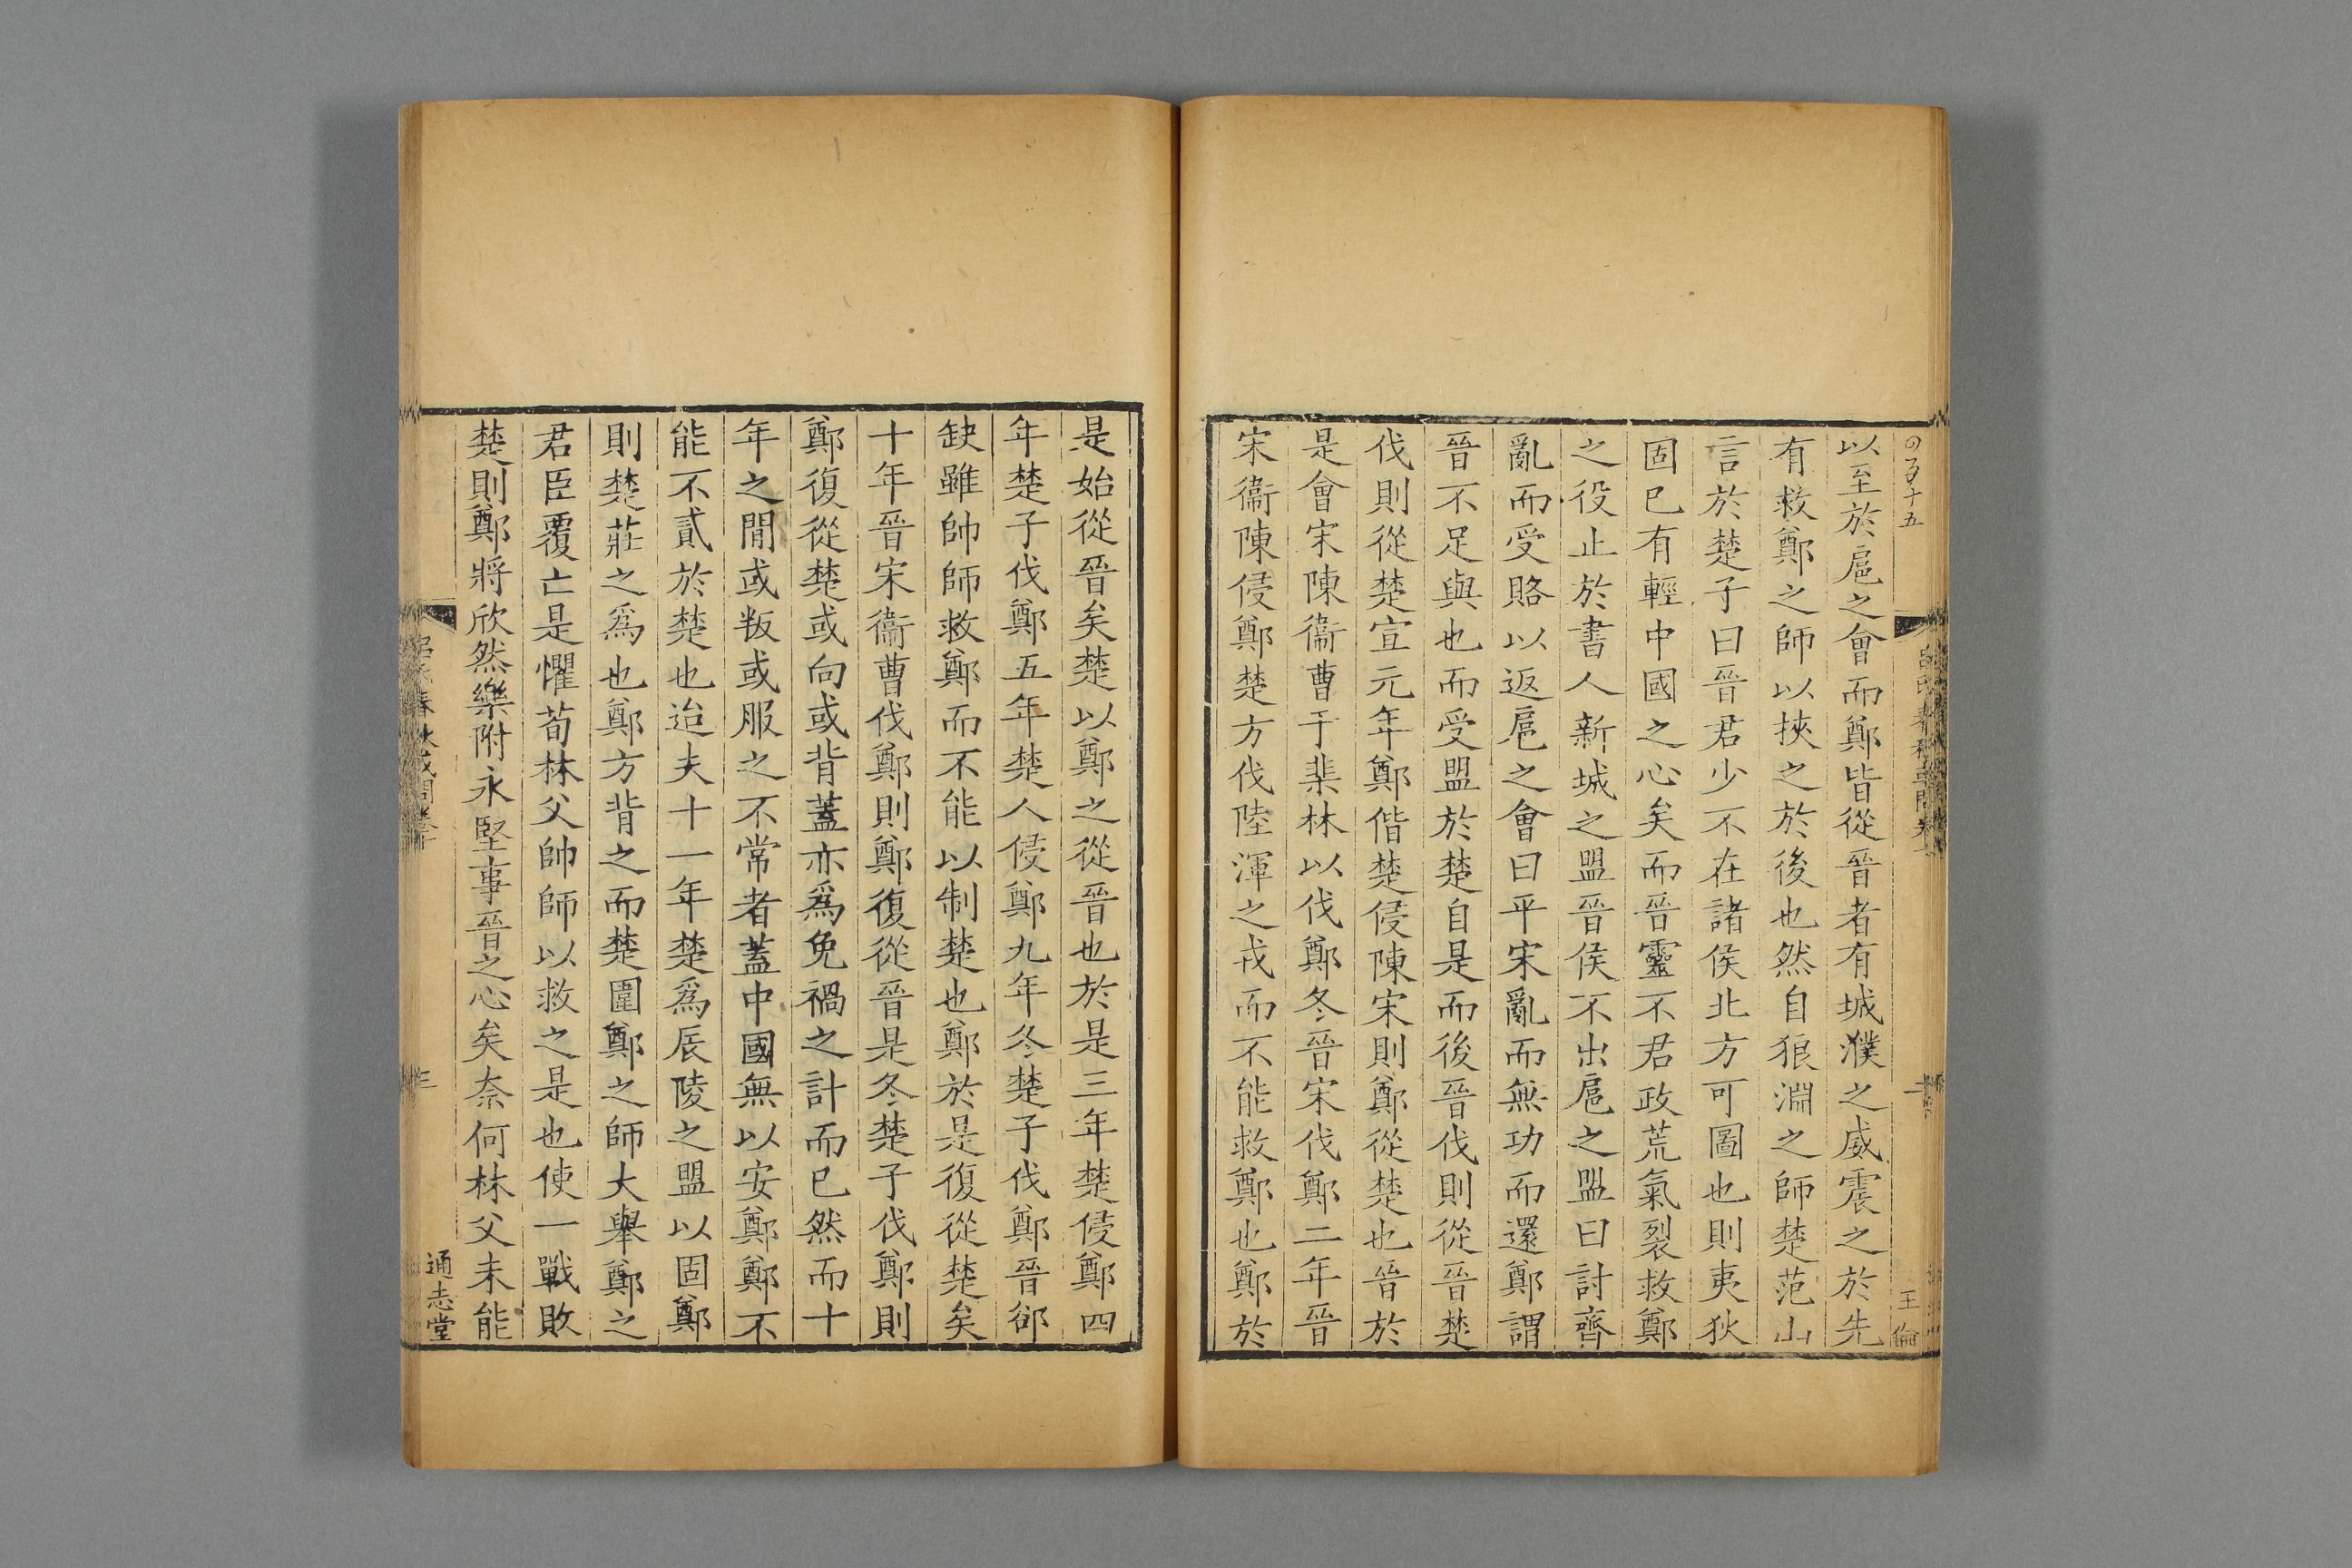 以至於扈之會而鄭皆從晉者有城濮之威震之於先
有救鄭之師以挾之於後也然自狼淵之師楚范山
言於楚子曰晉君少不在諸侯北方可圖也則夷狄
固已有輕中國之心矣而晉靈不君政荒氣裂救鄭
之役止於書人新城之盟晉侯不出扈之盟曰討齊
亂而受賂以返扈之會曰平宋亂而無功而還鄭謂
晉不足與也而受盟於楚自是而後晉伐則從晉楚
伐則從楚宣元年鄭偕楚侵陳宋則鄭從楚也晉於
是會宋陳衞曹于棐林以伐鄭冬晉宋伐鄭二年晉
宋衞陳侵鄭楚方伐陸渾之戎而不能救鄭也鄭於
王倫
是始從晉矣楚以鄭之從晉也於是三年楚侵鄭四
年楚子伐鄭五年楚人侵鄭九年冬楚子伐鄭晉郤
缺雖帥師救鄭而不能以制楚也鄭於是復從楚矣
十年晉宋衞曹伐鄭則鄭復從晉是冬楚子伐鄭則
鄭復從楚或向或背蓋亦爲免禍之計而已然而十
年之間或叛或服之不常者蓋中國無以安鄭鄭不
能不貳於楚也迨夫十一年楚爲辰陵之盟以固鄭
則楚莊之爲也鄭方背之而楚圍鄭之師大舉鄭之
君臣覆亡是懼荀林父帥師以救之是也使一戰敗
楚則鄭將欣然樂附永堅事晉之心矣奈何林父未能
通志堂